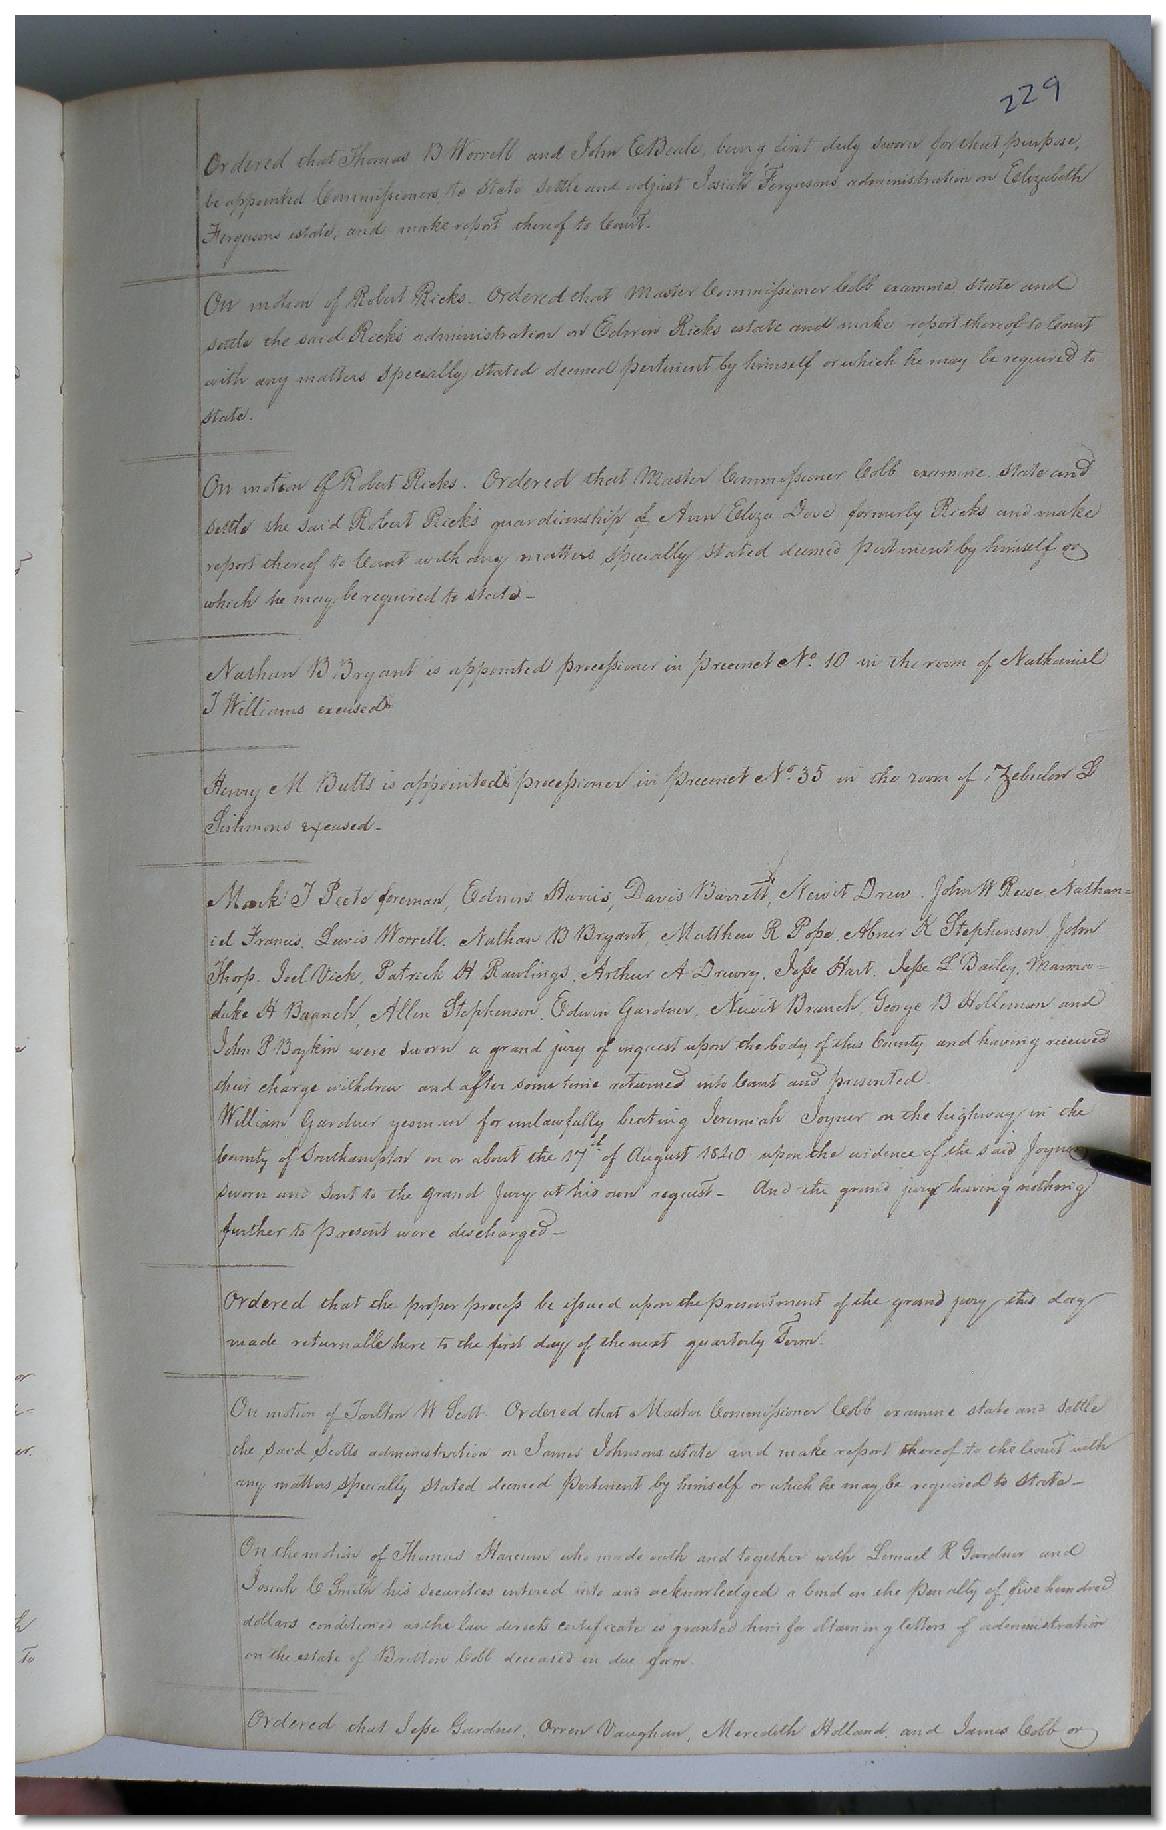 229
Ordered that Thomas B Worrell and John E Beale, being first duly sworn for that purpose,
be appointed Commissioners to state settle and adjust Josiah Fergusons administration on Elizabeth
Fergusons estate, and make report thereof to Court.
On motion of Robert Ricks. Ordered that Master Commissioner Cobb examine state and
settle the said Ricks administration on Edwin Ricks estate and make report thereof to Court
with any matters specially stated deemed pertinent by himself or which he may be required to
state.
On motion of Robert Ricks. Ordered that Master Commissioner Cobb examine state and
settle the said Robert Ricks guardianship of Ann Eliza Dove formerly Ricks and make
report thereof to Court with any matters specially stated deemed pertinent by himself or
which he may be required to state –
Nathan B Bryant is appointed processioner in precinct No. 10 in the room of Nathaniel
T Williams excused
Henry M Butts is appointed processioner in precinct No. 35 in the room of Zebulon L
excused –
Mark T Peete foreman, Edwin Harris, Davis Barrett, Newit Drew, John W Reese Nathan=
iel Francis, Lewis Worrell, Nathan B Bryant, Matthew R Pope, Abner K Stephenson John
Thorp, Joel Vick, Patrick H Rawlings, Arthur A Drewry, Jesse Hart, Jesse L Bailey, Marma=
duke H Branch, Allen Stephenson, Edwin Gardner, Newit Branch, George B Holleman and
John P Boykin were sworn a grand jury of inquest upon the body of this County and having received
their charge withdrew and after some time returned into Court and presented.
William Gardner yeoman for unlawfully beating Jeremiah Joyner on the highway in the
County of Southampton on or about the 17th of August 1840 upon the evidence of the said Joyner
sworn and sent to the grand jury at his own request – And the grand jury having nothing
further to present were discharged –
Ordered that the proper process be issued upon the presentment of the grand jury this day
made returnable here to the first day of the next quarterly Term.
On motion of Tarlton W Scott. Ordered that Master Commissioner Cobb examine state and settle
the said Scotts administration on James Johnsons estate and make report thereof to the Court with
any matters specially stated deemed pertinent by himself or which he may be required to state –
On the motion of Thomas who made oath and together with Lemuel R Gardner and
Josiah C Smith his securities entered into and acknowledged a bond in the penalty of five hundred
dollars conditioned as the law directs certificate is granted him for obtaining letters of administration
on the estate of Britton Cobb deceased in due form.
Ordered that Jesse Gardner, Orren Vaughan, Meredith Holland, and James Cobb or